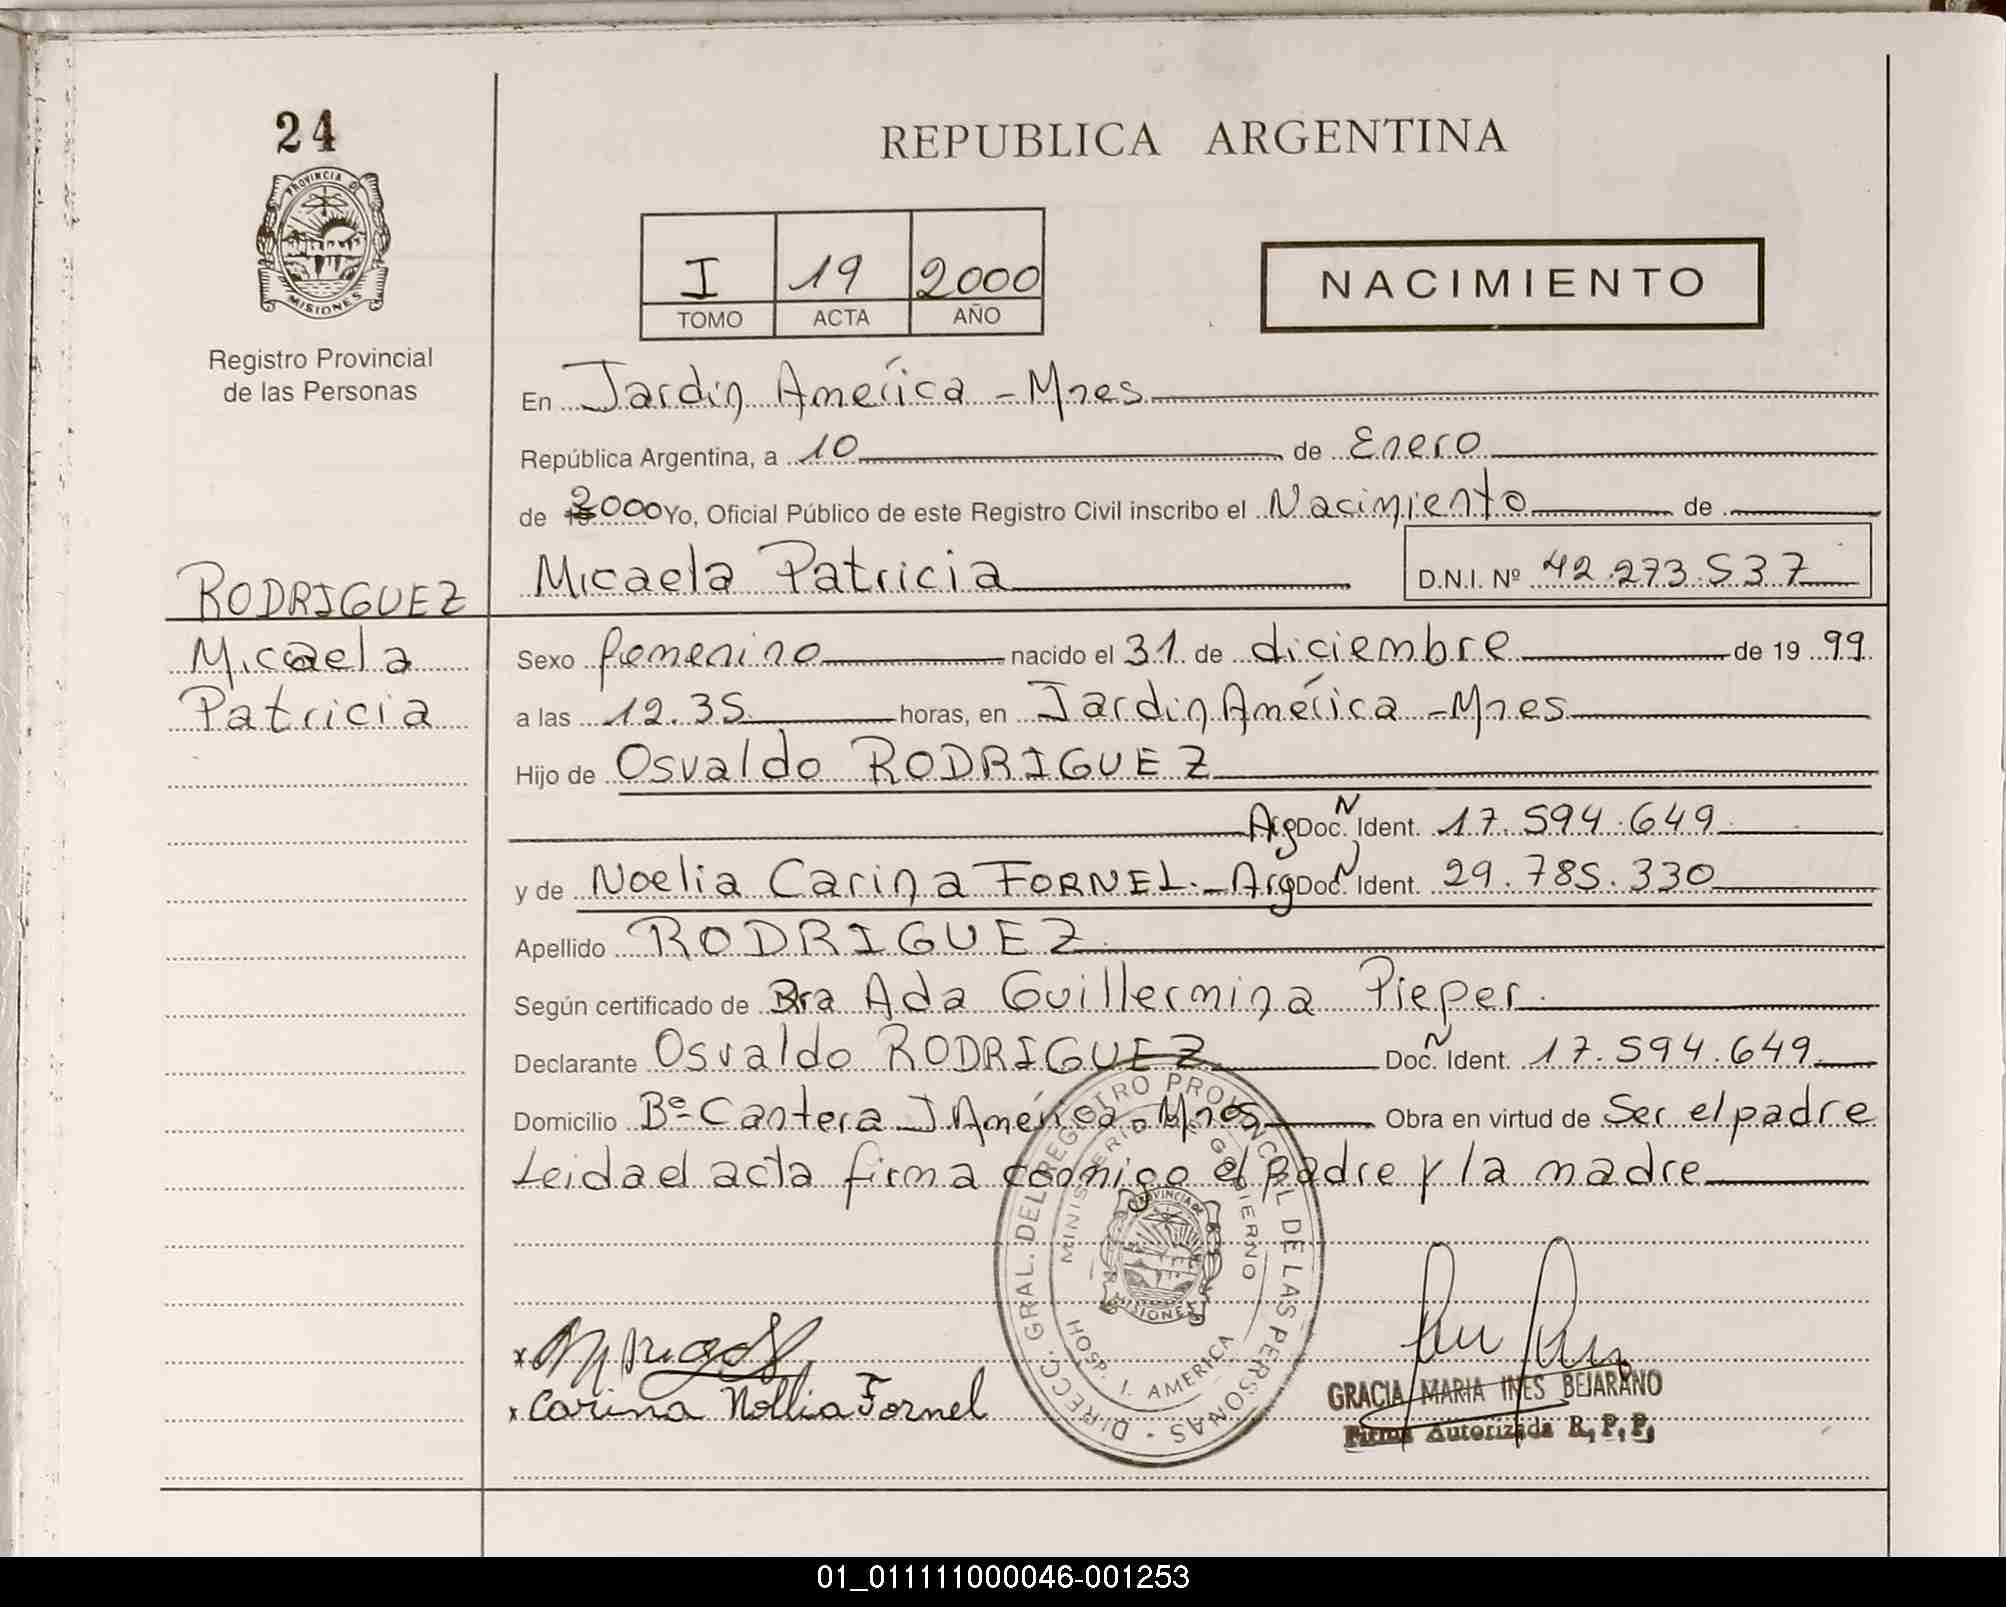 24
PROVINCIA D
MISIONES
Registro Provincial
de las Personas
REPUBLICA ARGENTINA
I 19 2000
TOMO ACTA AÑO
NACIMIENTO
En Jardin América - Mnes
República Argentina, a 10 de Enero
de 2000 Yo, Oficial Público de este Registro Civil inscribo el Nacimiento de
Micaela Patricia D.N.I. Nº 42.273.537
RODRIGUEZ
Micaela
Patricia
Sexo femenino nacido el 31 de diciembre de 19 99
a las 12.35 horas, en Jardin América - Mnes
Hijo de Osvaldo RODRIGUEZ
Arg Doc. N Ident. 17.594.649
y de Noelia Carina FORNEL.- Arg Doc. N Ident. 29.785.330
Apellido RODRIGUEZ
Según certificado de Dra Ada Guillermina Pieper.
Declarante Osvaldo RODRIGUEZ Doc. N Ident. 17.594.649
Domicilio Bº Cantera J América - Mnes Obra en virtud de Ser el padre
Leida el acta firma conmigo el padre y la madre
DIRECC. GRAL. DEL REGISTRO PROVINCIAL DE LAS PERSONAS
MINISTERIO DE GOBIERNO
PROVINCIA DE
MISIONES
HOSP. J. AMERICA
x Carina Nollia Fornel
GRACIA MARIA INES BEJARANO
Firma Autorizada R.P.P.
01_011111000046-001253